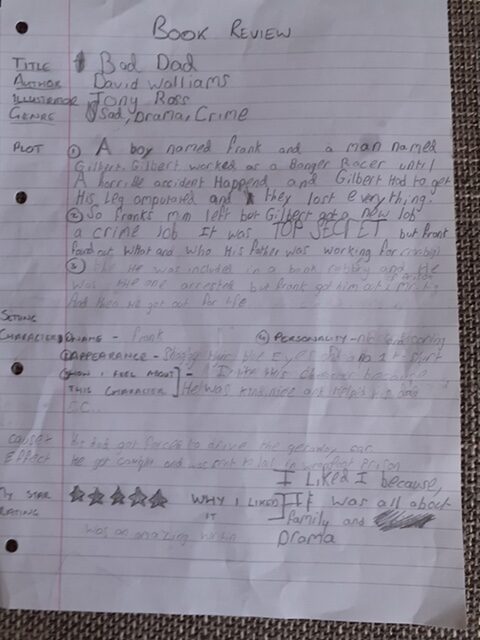 BOOK REVIEW
TITLE Bad Dad
AUTHOR David walliams
ILLUSTRATOR Tony Ross
GENRE Sad, Drama, Crime
PLOT ① A boy named Frank and a man named
Gilbert. Gilbert worked as a Banger Racer until
A horrible accident Happend and Gilbert Had to get
His Leg amputated and they lost everything.
② So Franks mm left but Gilbert got a new Job
a crime Job It was TOP SECRET but Frank
found out What and Who His Father was working for
③ He was included in a bank robbery and He
was the one arrested but Frank got him
And then He got out for life
SETTING
CHARACTER ① NAME - Frank ④ PERSONALITY - caring
② APPEARANCE - Hair Blue Eyes and a short
③ HOW I FEEL ABOUT - I like this because
THIS CHARACTER He was kind, nice and Helped His Dad
S.C..
CAUSE + His Dad got forced to drive the getaway car
EFFECT He got caught and was sent to prison
I Liked I because,
MY STAR WHY I LIKED It was all about
RATING IT family and
was an amazing Drama